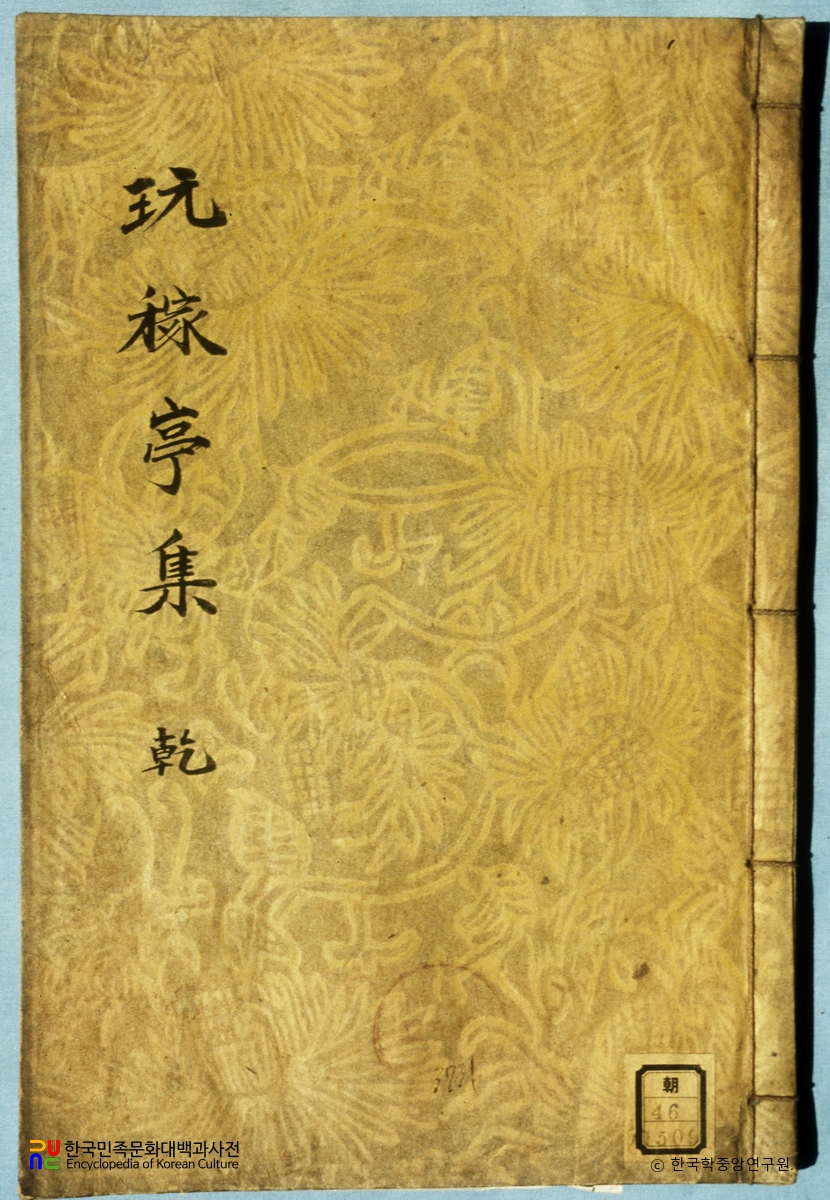 玩稼亭集 乾
朝
46
한국민족문화대백과사전
Encyclopedia of Korean Culture
© 한국학중앙연구원